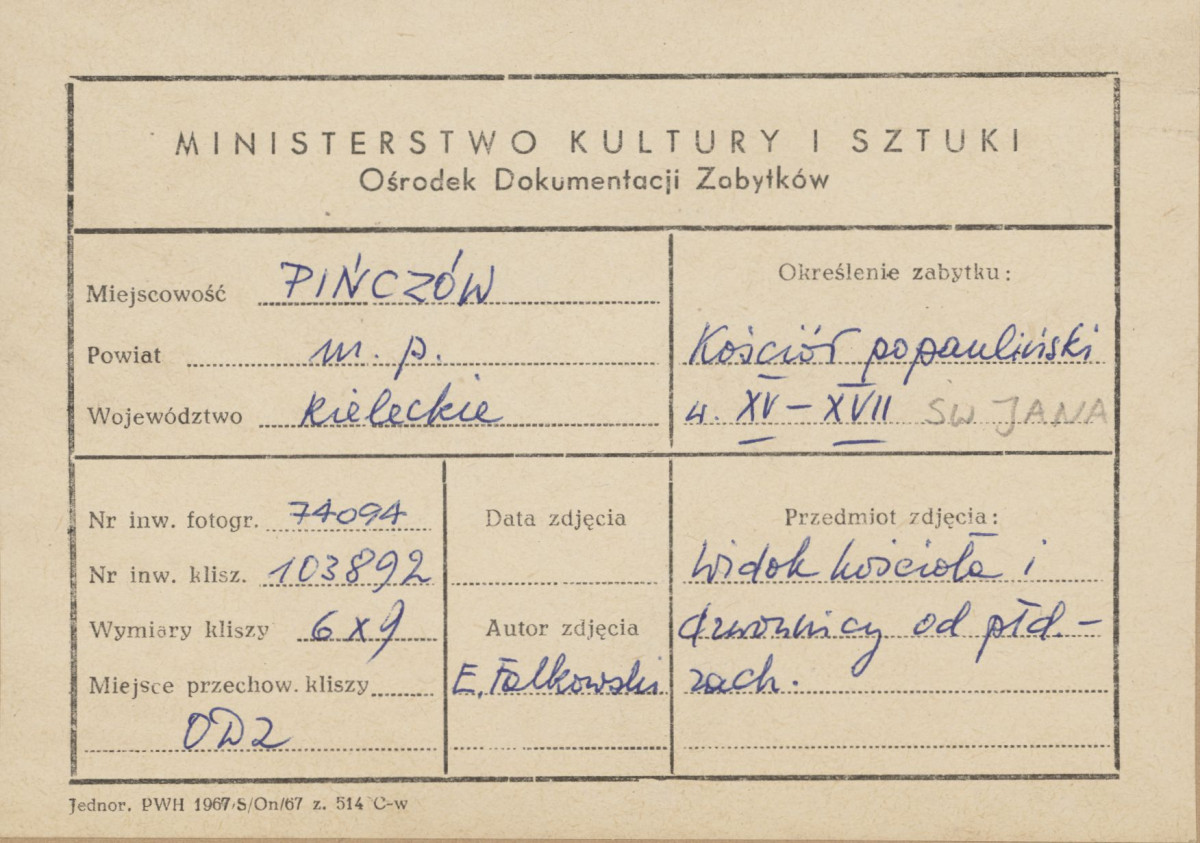 MINISTERSTWO KULTURY I SZTUKI
Ośrodek Dokumentacji Zabytków
Miejscowość PIŃCZÓW
Powiat m. p.
Województwo kieleckie
Określenie zabytku:
Kościół popauliński
w. XV – XVII SW JANA
Nr inw. fotogr. 74094
Nr inw. klisz. 103892
Wymiary kliszy 6 x 9
Miejsce przechow. kliszy
ODZ
Data zdjęcia
Autor zdjęcia
E. Falkowski
Przedmiot zdjęcia:
Widok kościoła i
dzwonnicy od płd.–
zach.
Jednor. PWH 1967 S/On/67 z. 514 C-w